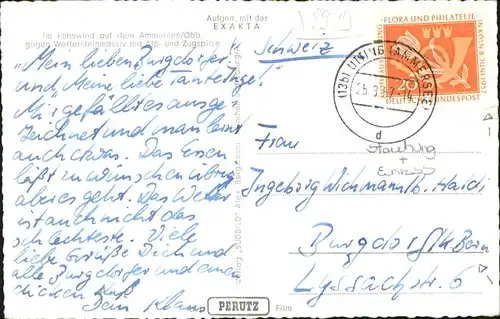 Aufgen. mit der
EXAKTA
Im Föhnwind auf dem Ammersee/Obb.
gegen Wettersteinmassiv mit Alp- und Zugspitze
Schweiz
FLORA UND PHILATELIE
IN KÖLN · JUNI 1957
20
DEUTSCHE BUNDESPOST
(13b) UTTING (AMMERSEE)
25.9.57
d
Mein lieber Burgdorfer
und Meine liebe Tanteringe!
Mir gefällt es ausge
zeichnet und man lernt
auch etwas. Das Essen
läßt zu wünschen übrig
aber es geht. Das Wetter
ist auch nicht das
schlechteste. Viele
liebe Grüße Dich und
alle Burgdorfer und einen
dicken Kuß
Dein Klaus
Frau
Ingeborg Wichmann b. Haldi
Burgdorf/Kt. Bern
Lyssachstr. 6
PERUTZ
Film